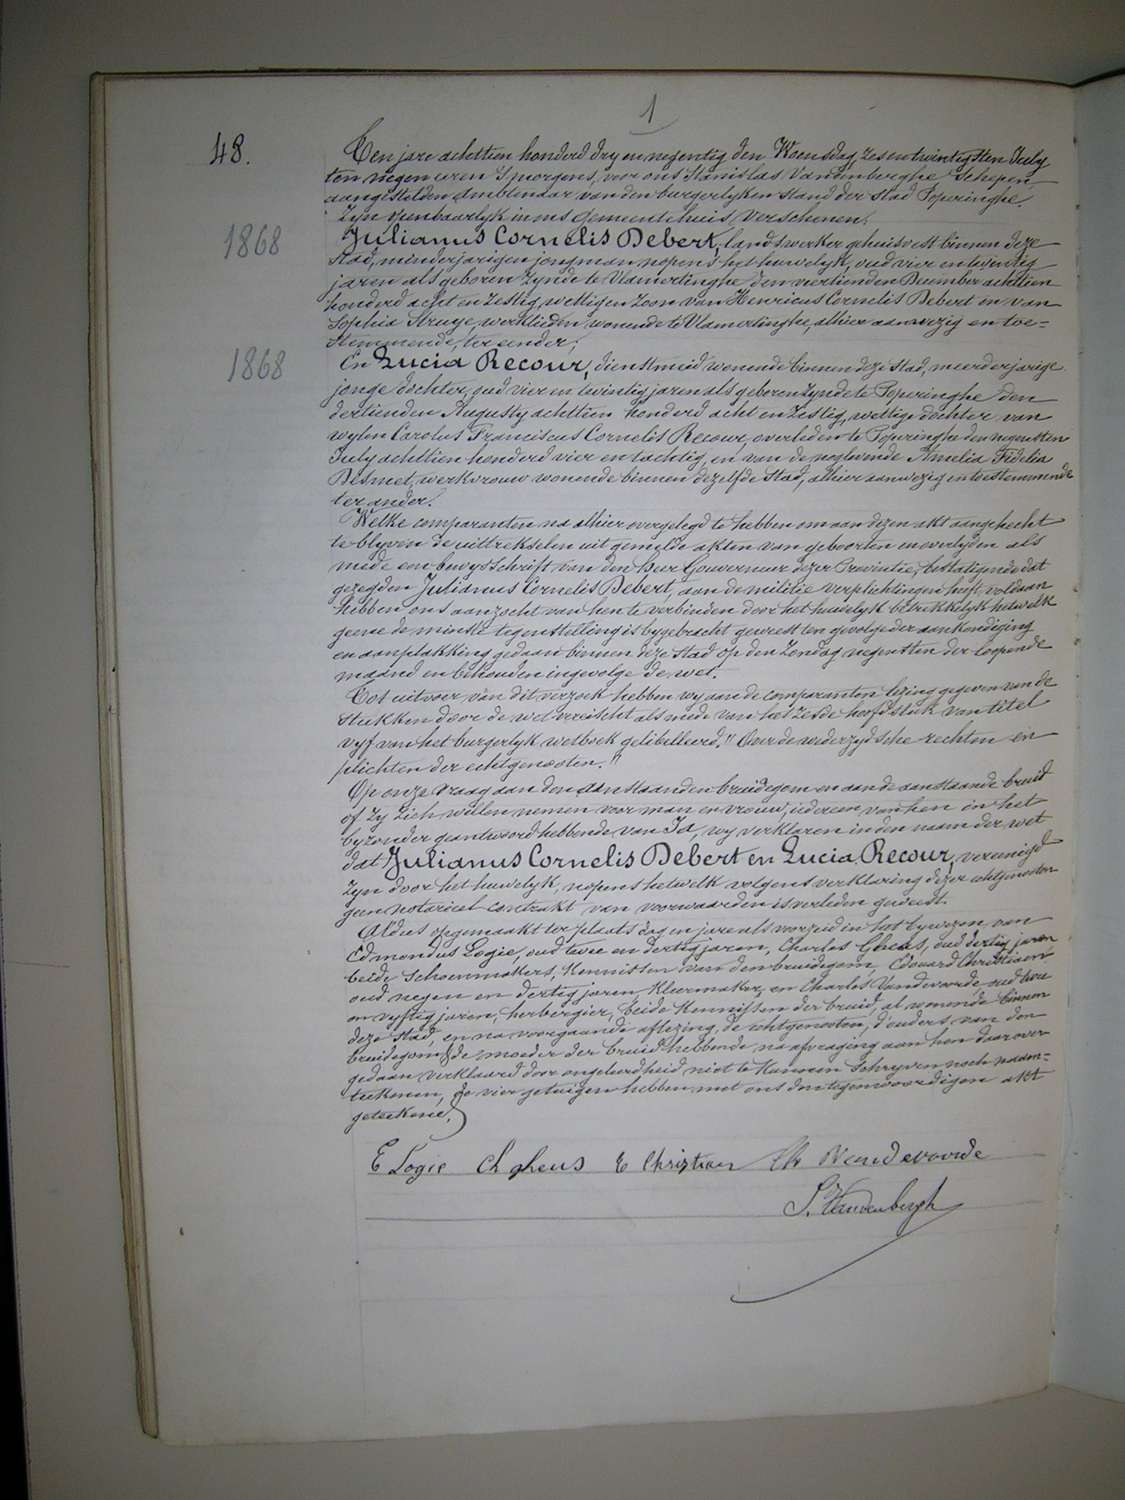 1
48.
Ten jare achttien honderd dry en negentig den Woensdag zesentwintigsten July
ten negen uren 's morgens, voor ons Stanislas Vandenberghe Schepen
aangestelden Ambtenaar van den burgerlyken stand der stad Poperinghe.
Zyn openbaarlyk in ons gemeentehuis verschenen.
1868
Julianus Cornelis Debert, landswerker gehuisvest binnen deze
stad, minderjarigen jongman nopens het huwelyk, oud vier en twintig
jaren als geboren zynde te Vlamertinghe den veertienden December achttien
honderd acht en zestig, wettigen zoon van Henricus Cornelis Debert en van
Sophia Struye, werklieden wonende te Vlamertinghe, alhier aanwezig en toe=
stemmende, ter eender;
1868
En Lucia Recour, dienstmeid wonende binnen deze stad, meerderjarige
jonge dochter, oud vier en twintig jaren als geboren zynde te Poperinghe den
dertienden Augusty achttien honderd acht en zestig, wettige dochter van
wylen Carolus Franciscus Cornelis Recour, overleden te Poperinghe den negensten
July achttien honderd vier en tachtig, en van de nog levende Amelia Fidelia
Desmet, werkvrouw wonende binnen dezelfde stad, alhier aanwezig en toestemmende
ter ander.
Welke comparanten na alhier overgelegd te hebben om aan dezen akt aangehecht
te blyven de uittrekselen uit gemelde akten van geboorten en overlyden als
mede een bewysschrift van den heer Gouverneur dezer Provintie, bestatigende dat
gezegden Julianus Cornelis Debert, aan de militie verplichtingen heeft voldaan
hebben ons aanzocht van hen te verbinden door het huwelyk betrekkelyk hetwelk
geene de minste tegenstelling is bygebracht geweest ten gevolge der aankondiging
en aanplakking gedaan binnen deze stad op den Zondag negensten der loopende
maand en behouden ingevolge de wet.
Tot uitvoer van dit verzoek hebben wy aan de comparanten lezing gegeven van de
stukken door de wet vereischt als mede van het zesde hoofdstuk van titel
vyf van het burgerlyk wetboek gelibelleerd, "Over de wederzydsche rechten en
plichten der echtgenooten."
Op onze vraag aan den aanstaanden bruidegom en aan de aanstaande bruid
of zy zich willen nemen voor man en vrouw, iedereen van hen in het
byzonder geantwoord hebbende van Ja, wy verklaren in den naam der wet
dat Julianus Cornelis Debert en Lucia Recour, vereenigd
zyn door het huwelyk, nopens hetwelk volgens verklaring dezer echtgenooten
geen notarieel contrakt van voorwaarden is verleden geweest.
Aldus opgemaakt ter plaats dag en jare als voorzeid in het bywezen van
Edmondus Logie, oud twee en dertig jaren, Charles Gheus, oud dertig jaren
beide Schoenmakers, kennissen van den bruidegom, Edouard Christiaen
oud negen en dertig jaren, kleermaker, en Charles Vandevoorde, oud twee
en vyftig jaren, herbergier, beide kennissen der bruid, al wonende binnen
deze stad, en na voorgaande aflezing, de echtgenooten, d'ouders van den
bruidegom & de moeder der bruid hebbende na afvraging aan hen daarover
gedaan verklaard door ongeleerdheid niet te kunnen schryven noch naam=
teekenen, de vier getuigen hebben met ons den tegenwoordigen akt
geteekend.
E Logie Ch gheus E Christian Ch Vandevoorde
S. Vandenbergh